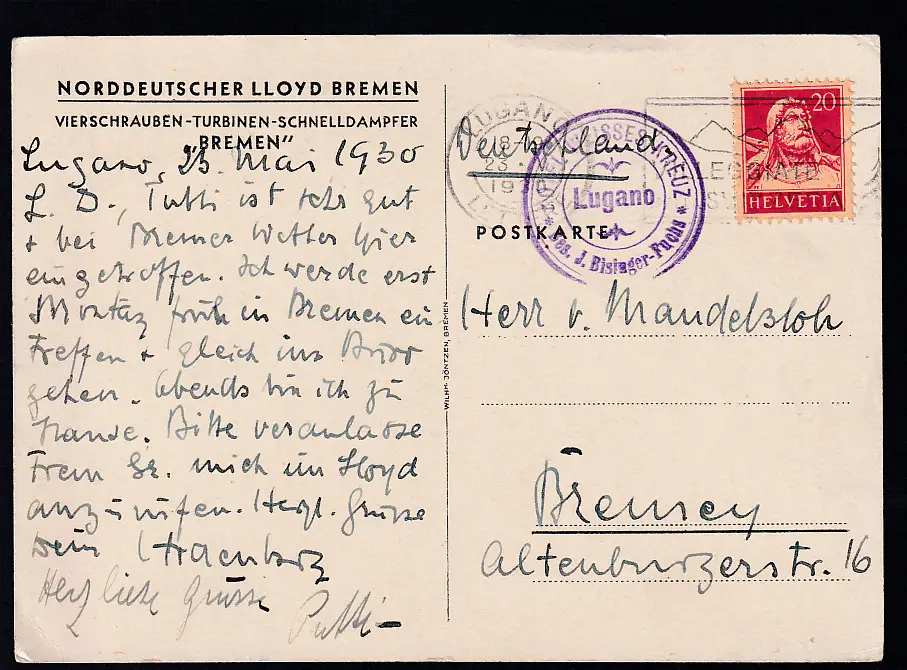 NORDDEUTSCHER LLOYD BREMEN
VIERSCHRAUBEN-TURBINEN-SCHNELLDAMPFER
„BREMEN"
Lugano, 23. Mai 1930
L. D., Tutti ist sehr gut
+ bei Bremer Wetter hier
eingetroffen. Ich werde erst
Montag früh in Bremen ein
treffen + gleich ins Büro
gehen. Abends bin ich zu
Hause. Bitte veranlasse
Frem Gr. mich im Lloyd
anzurufen. Herzl. Grüsse
Dein
Herzliche Grüsse
Putti
WILHM. JÖNTZEN, BREMEN
LUGANO
23.
19
Deutschland
KREUZ
Lugano
Bes. J. Bisinger-Fuchs
LEGGIATE
20
HELVETIA
POSTKARTE
Herr v. Mandelsloh
Bremen
Altenburgerstr. 16